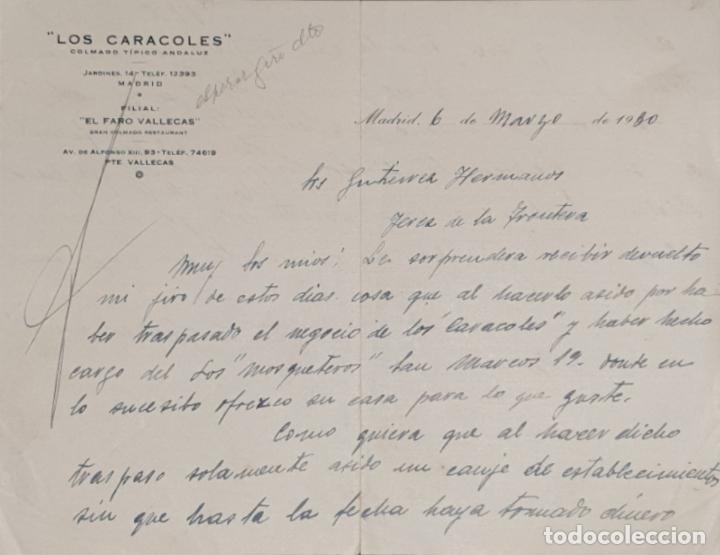 "LOS CARACOLES"
COLMADO TÍPICO ANDALUZ
JARDINES, 14 - TELÉF. 12393
MADRID
FILIAL:
"EL FARO VALLECAS"
GRAN COLMADO RESTAURANT
AV. DE ALFONSO XIII, 93 - TELÉF. 74619
PTE VALLECAS
esperar giro dto
Madrid, 6 de Marzo de 1930
Srs Gutierrea Hermanos
Jerez de la Frontera
Muy Srs mios: Le sorprendera recibir devuelto
mi jiro de estos dias. cosa que al hacerlo asido por ha
ber traspasado el negocio de los "Caracoles" y haber hecho
cargo del Los "Mosqueteros" San Marcos 19. donde en
lo sucesibo ofrezco su casa para lo que guste.
Como quiera que al hacer dicho
traspaso solamente asido un canje de establecimientos
sin que hasta la fecha haya tomado dinero
todocoleccion